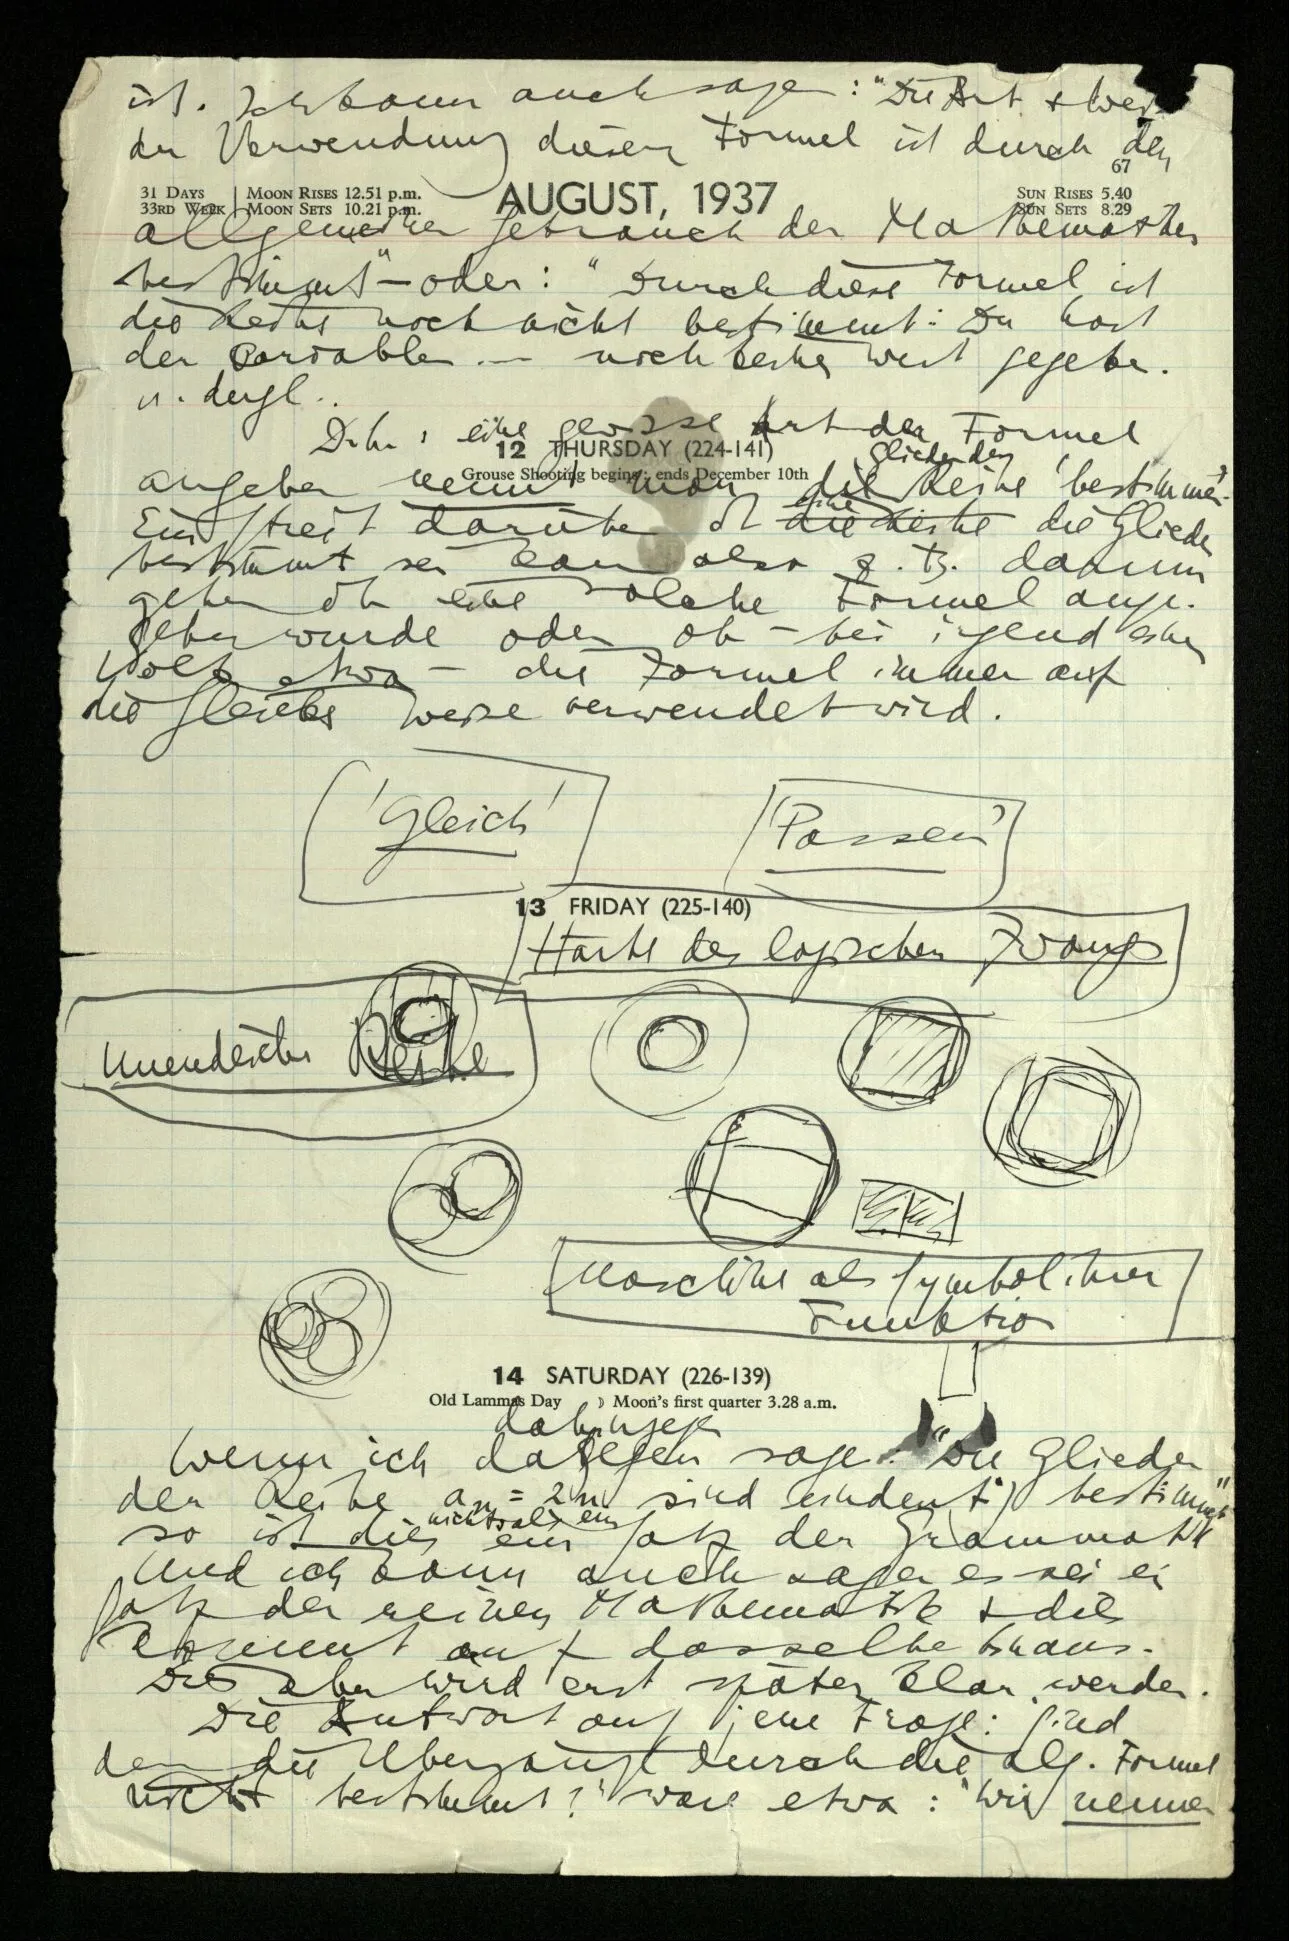 ist. Ich kann auch sagen: "Die Art & Weise
der Verwendung dieser Formel ist durch den
67
31 DAYS MOON RISES 12.51 p.m. AUGUST, 1937 SUN RISES 5.40
33RD WEEK MOON SETS 10.21 p.m. SUN SETS 8.29
allgemeinen Gebrauch der Mathematiker
bestimmt" – oder: "Durch diese Formel ist
die Reihe noch nicht bestimmt: Du hast
der Variablen – noch keinen Wert gegeben.
u. dergl..
D.h.: eine gewisse Art der Formel
12 THURSDAY (224-141)
Grouse Shooting begins; ends December 10th
Glieder der
angeben nennt man die Reihe 'bestimmen'.
eine
Ein Streit darüber ob die Reihe die Glieder
bestimmt sei kann also z.B. darum
gehen ob eine solche Formel ange-
geben wurde oder ob – bei irgend einem
Volk etwa – die Formel immer auf
die gleiche Weise verwendet wird.
'Gleich' 'Passen'
13 FRIDAY (225-140)
Härte des logischen Zwangs
Unendliche Reihe
Maschine als Symbol ihrer
Funktion
14 SATURDAY (226-139)
Old Lammas Day ☽ Moon's first quarter 3.28 a.m.
dahingegen
Wenn ich dagegen sage: "Die Glieder
der Reihe aₙ = 2n sind eindeutig bestimmt"
so ist dies ein Satz der Grammatik
Und ich kann auch sagen es sei ein
Satz der reinen Mathematik & dies
kommt auf dasselbe hinaus.
Dies aber wird erst später klar werden.
Die Antwort auf jene Frage: Sind
denn die Übergänge durch die alg. Formel
nicht bestimmt?" wäre etwa: "Wir nennen